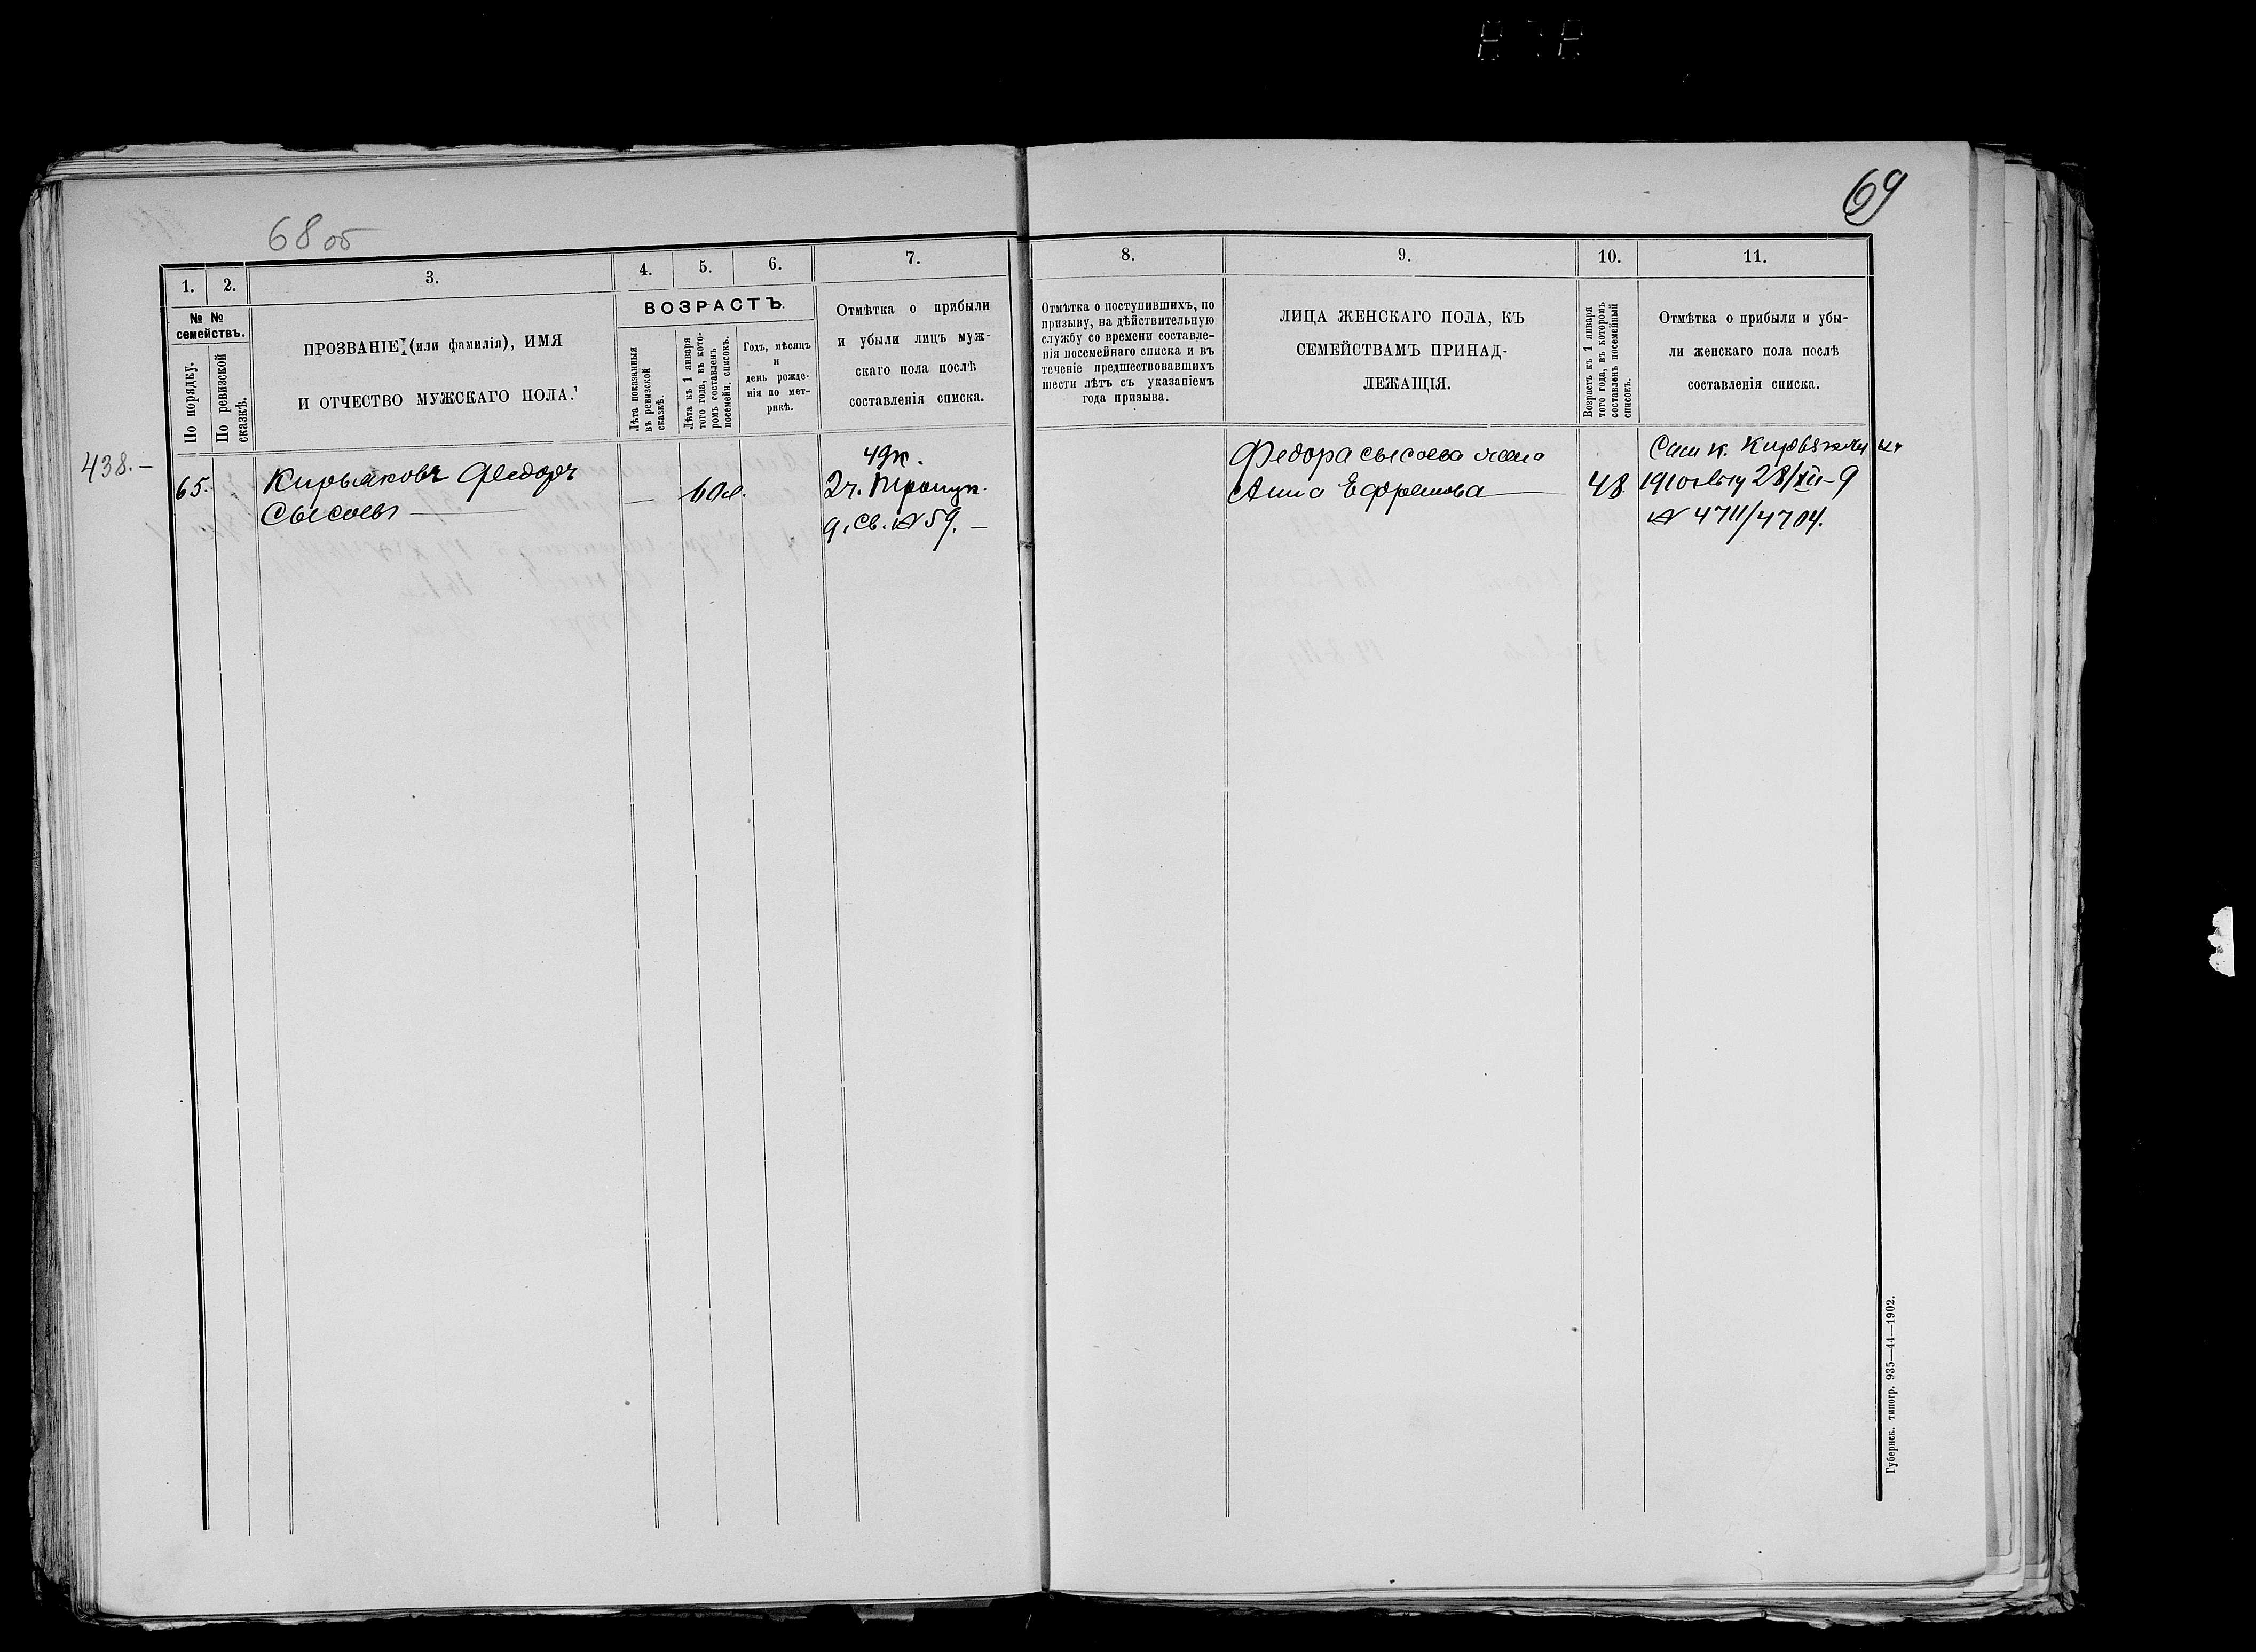 68 об
69
1.
2.
3.
4.
5.
6.
7.
8.
9.
10.
11.
№ №
семействъ.
По порядку.
По ревизской
сказкѣ.
ПРОЗВАНІЕ (или фамилія), ИМЯ
И ОТЧЕСТВО МУЖСКАГО ПОЛА.
ВОЗРАСТЪ.
Лѣта показанныя
въ ревизской
сказкѣ.
Лѣта къ 1 января
того года, въ кото-
ромъ составленъ
посемейн. списокъ.
Годъ, мѣсяцъ
и
день рожде-
нія по мет-
рикѣ.
Отмѣтка о прибыли
и убыли лицъ муж-
скаго пола послѣ
составленія списка.
Отмѣтка о поступившихъ, по
призыву, на дѣйствительную
службу со времени составле-
нія посемейнаго списка и въ
теченіе предшествовавшихъ
шести лѣтъ съ указаніемъ
года призыва.
ЛИЦА ЖЕНСКАГО ПОЛА, КЪ
СЕМЕЙСТВАМЪ ПРИНАД-
ЛЕЖАЩІЯ.
Возрастъ къ 1 января
того года, въ которомъ
составленъ посемейный
списокъ.
Отмѣтка о прибыли и убы-
ли женскаго пола послѣ
составленія списка.
438.—
65.
Кирьяковъ Федоръ
Сысоевъ
—
60 л.
2 ч.
д. Св. № 59.—
Федора Сысоева жена
Анна Ефремова
48
1910 28/XII-9
№ 4711/4704.
Губернск. типогр. 935—44—1902.